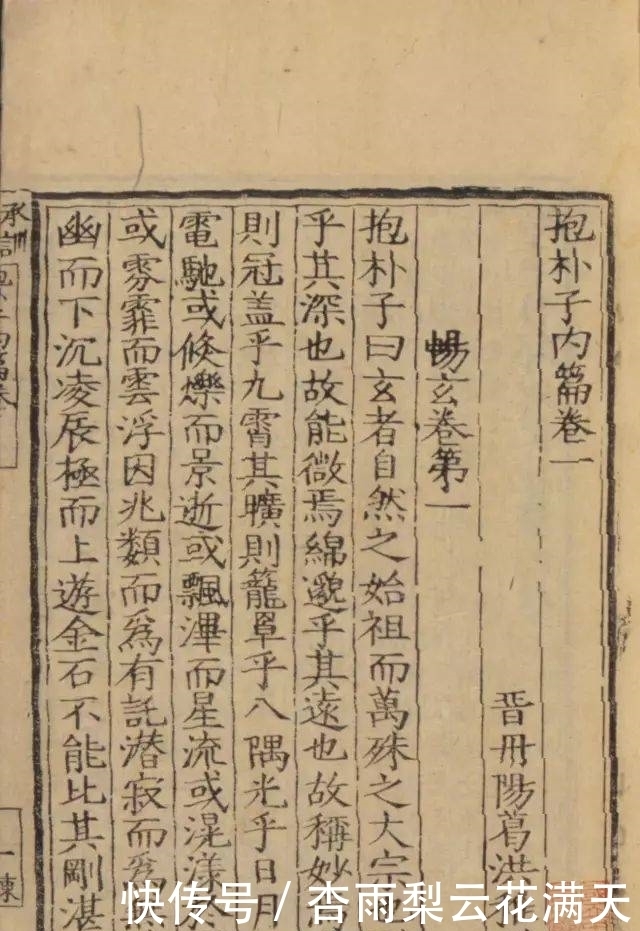 抱朴子内篇卷一
晋丹陽葛洪
暢玄卷第一
抱朴子曰玄者自然之始祖而萬殊之大宗
乎其深也故能微焉綿邈乎其遠也故稱妙
則冠盖乎九霄其曠則籠罩乎八隅光乎日月
電馳或倐爍而景逝或飄滭而星流或滉漾於
或雰霏而雲浮因兆類而爲有託潜寂而爲
幽而下沉凌辰極而上遊金石不能比其剛湛
承訓
快传号 / 杏雨梨云花满天